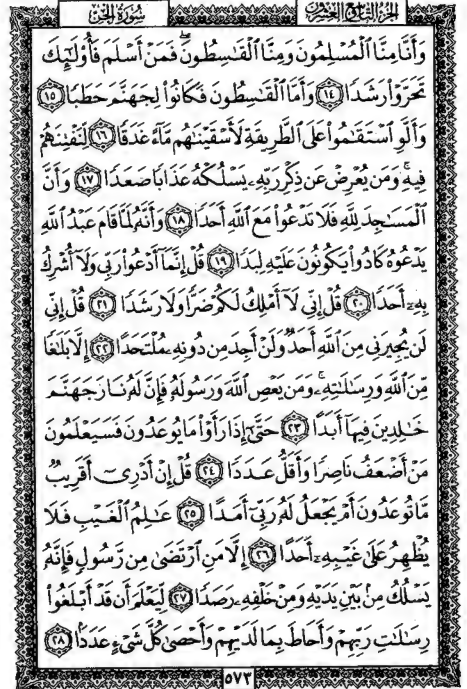 الجزء التاسع والعشرون سورة الجن
وَأَنَّا مِنَّا ٱلْمُسْلِمُونَ وَمِنَّا ٱلْقَٰسِطُونَۖ فَمَنْ أَسْلَمَ فَأُو۟لَٰٓئِكَ
تَحَرَّوْا۟ رَشَدًا ١٤ وَأَمَّا ٱلْقَٰسِطُونَ فَكَانُوا۟ لِجَهَنَّمَ حَطَبًا ١٥
وَأَلَّوِ ٱسْتَقَٰمُوا۟ عَلَى ٱلطَّرِيقَةِ لَأَسْقَيْنَٰهُم مَّآءً غَدَقًا ١٦ لِّنَفْتِنَهُمْ
فِيهِۚ وَمَن يُعْرِضْ عَن ذِكْرِ رَبِّهِۦ يَسْلُكْهُ عَذَابًا صَعَدًا ١٧ وَأَنَّ
ٱلْمَسَٰجِدَ لِلَّهِ فَلَا تَدْعُوا۟ مَعَ ٱللَّهِ أَحَدًا ١٨ وَأَنَّهُۥ لَمَّا قَامَ عَبْدُ ٱللَّهِ
يَدْعُوهُ كَادُوا۟ يَكُونُونَ عَلَيْهِ لِبَدًا ١٩ قُلْ إِنَّمَآ أَدْعُوا۟ رَبِّى وَلَآ أُشْرِكُ
بِهِۦٓ أَحَدًا ٢٠ قُلْ إِنِّى لَآ أَمْلِكُ لَكُمْ ضَرًّا وَلَا رَشَدًا ٢١ قُلْ إِنِّى
لَن يُجِيرَنِى مِنَ ٱللَّهِ أَحَدٌ وَلَنْ أَجِدَ مِن دُونِهِۦ مُلْتَحَدًا ٢٢ إِلَّا بَلَٰغًا
مِّنَ ٱللَّهِ وَرِسَٰلَٰتِهِۦۚ وَمَن يَعْصِ ٱللَّهَ وَرَسُولَهُۥ فَإِنَّ لَهُۥ نَارَ جَهَنَّمَ
خَٰلِدِينَ فِيهَآ أَبَدًا ٢٣ حَتَّىٰٓ إِذَا رَأَوْا۟ مَا يُوعَدُونَ فَسَيَعْلَمُونَ
مَنْ أَضْعَفُ نَاصِرًا وَأَقَلُّ عَدَدًا ٢٤ قُلْ إِنْ أَدْرِىٓ أَقَرِيبٌ
مَّا تُوعَدُونَ أَمْ يَجْعَلُ لَهُۥ رَبِّىٓ أَمَدًا ٢٥ عَٰلِمُ ٱلْغَيْبِ فَلَا
يُظْهِرُ عَلَىٰ غَيْبِهِۦٓ أَحَدًا ٢٦ إِلَّا مَنِ ٱرْتَضَىٰ مِن رَّسُولٍ فَإِنَّهُۥ
يَسْلُكُ مِنۢ بَيْنِ يَدَيْهِ وَمِنْ خَلْفِهِۦ رَصَدًا ٢٧ لِّيَعْلَمَ أَن قَدْ أَبْلَغُوا۟
رِسَٰلَٰتِ رَبِّهِمْ وَأَحَاطَ بِمَا لَدَيْهِمْ وَأَحْصَىٰ كُلَّ شَىْءٍ عَدَدًۢا ٢٨
٥٧٣